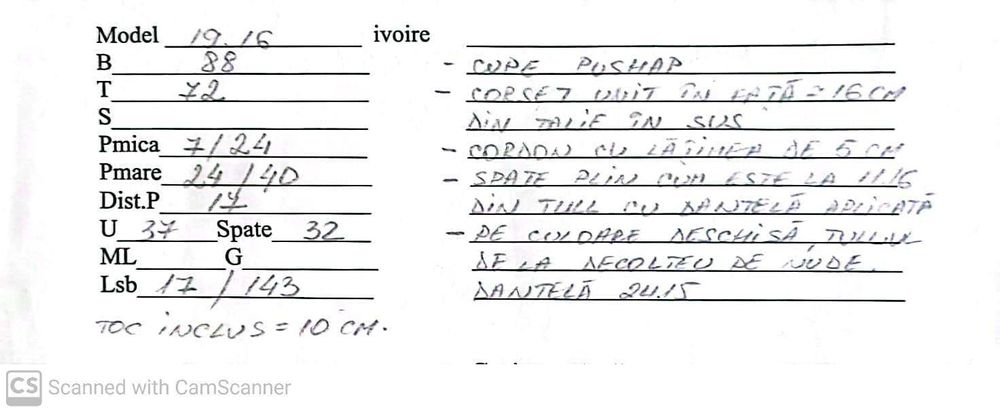 Model 19.16 ivoire
B 88
- CUPE PUSHAP
T 72
- CORSET UNIT ÎN FAȚĂ = 16 CM
S
DIN TALIE ÎN SUS
Pmica 7/24
- CORDON CU LĂȚIMEA DE 5 CM
Pmare 24/40
- SPATE PLIN CUM ESTE LA 11.16
Dist.P 17
DIN TULL CU DANTELĂ APLICATĂ
U 37 Spate 32
- PE CULOARE DESCHISĂ, TULLUL
ML G
DE LA DECOLTEU DE NUDE.
Lsb 17/143
DANTELĂ 24.15
TOC INCLUS = 10 CM.
CS Scanned with CamScanner